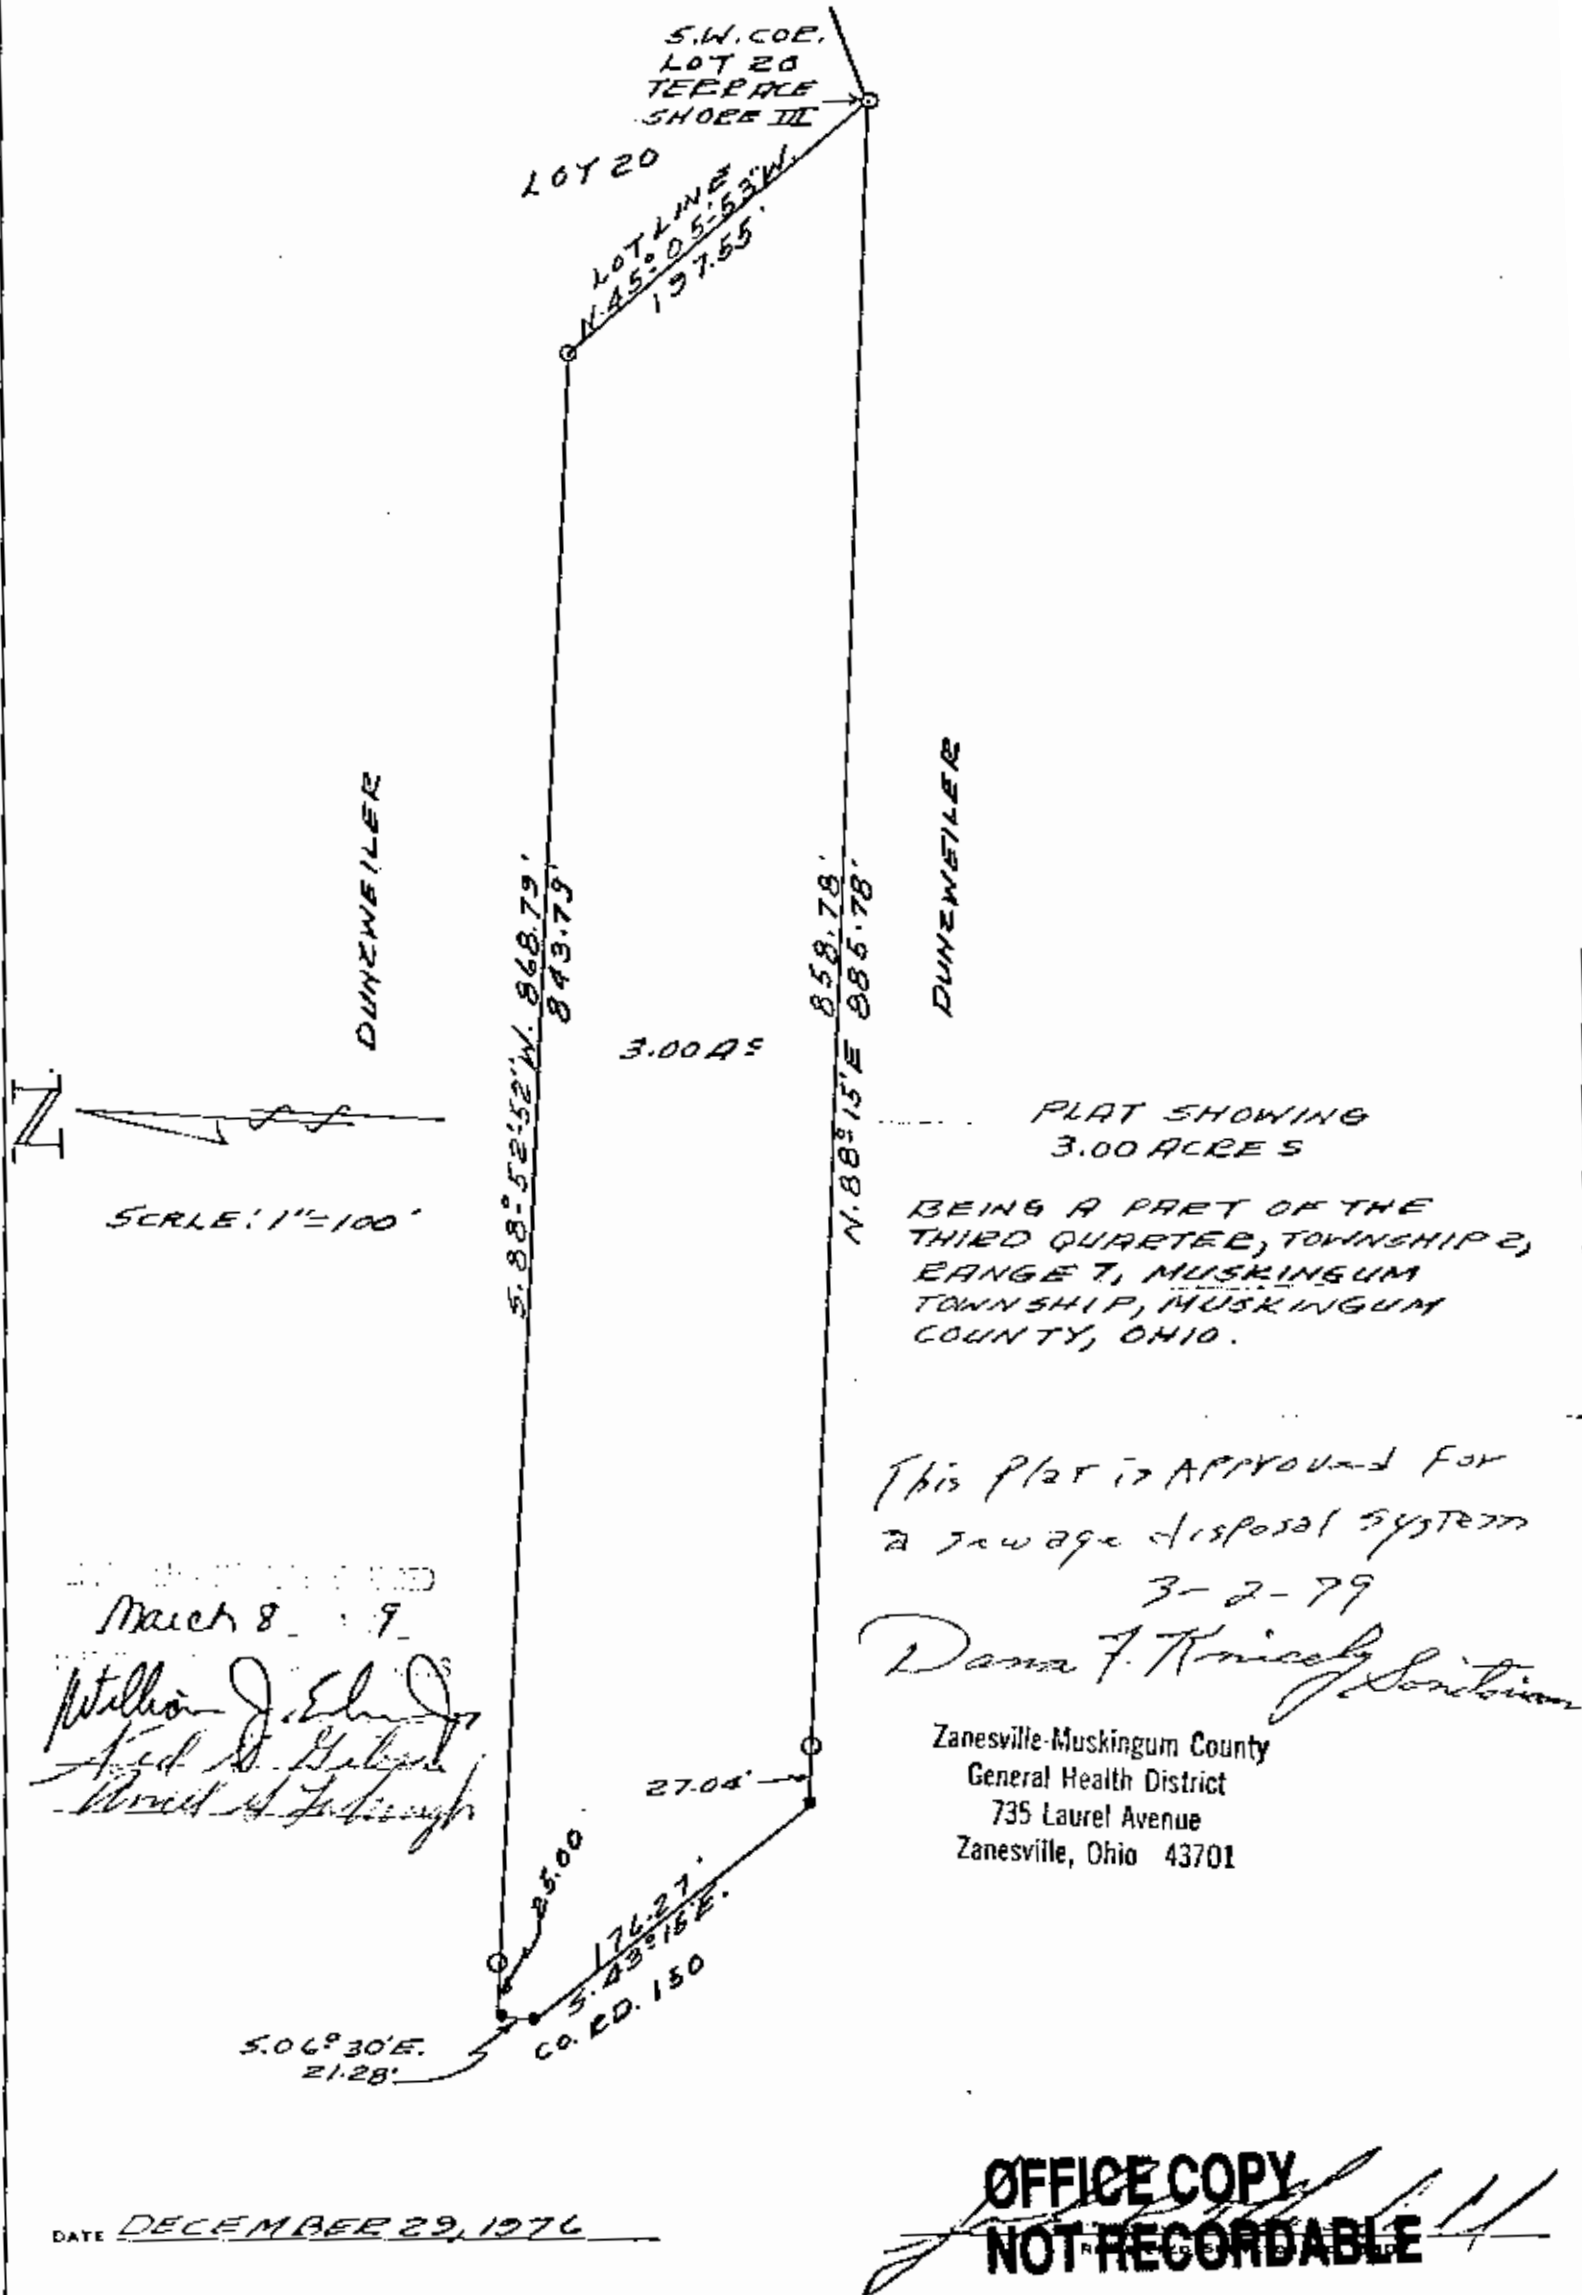 S.W. COR.
LOT 20
TERRACE
SHORE III
LOT 20
LOT LINE
N.45°05'53"W.
197.55'
DUNZWEILER
DUNZWEILER
S.88°-52'-52"W. 868.79'
843.79'
858.78'
N.88°15'E 885.78'
3.00 AS
N
SCALE: 1"=100'
PLAT SHOWING
3.00 ACRES
BEING A PART OF THE
THIRD QUARTER, TOWNSHIP 2,
RANGE 7, MUSKINGUM
TOWNSHIP, MUSKINGUM
COUNTY, OHIO.
This Plat is APProved For
a sewage disposal system
3-2-79
Dana F. Knicely Sanitarian
Zanesville-Muskingum County
General Health District
735 Laurel Avenue
Zanesville, Ohio 43701
March 8 9
William J.
27.04'
25.00'
176.27'
S.43°16'E.
CO. RD. 150
S.06°30'E.
21.28'
DATE DECEMBER 29, 1976
OFFICE COPY
NOT RECORDABLE